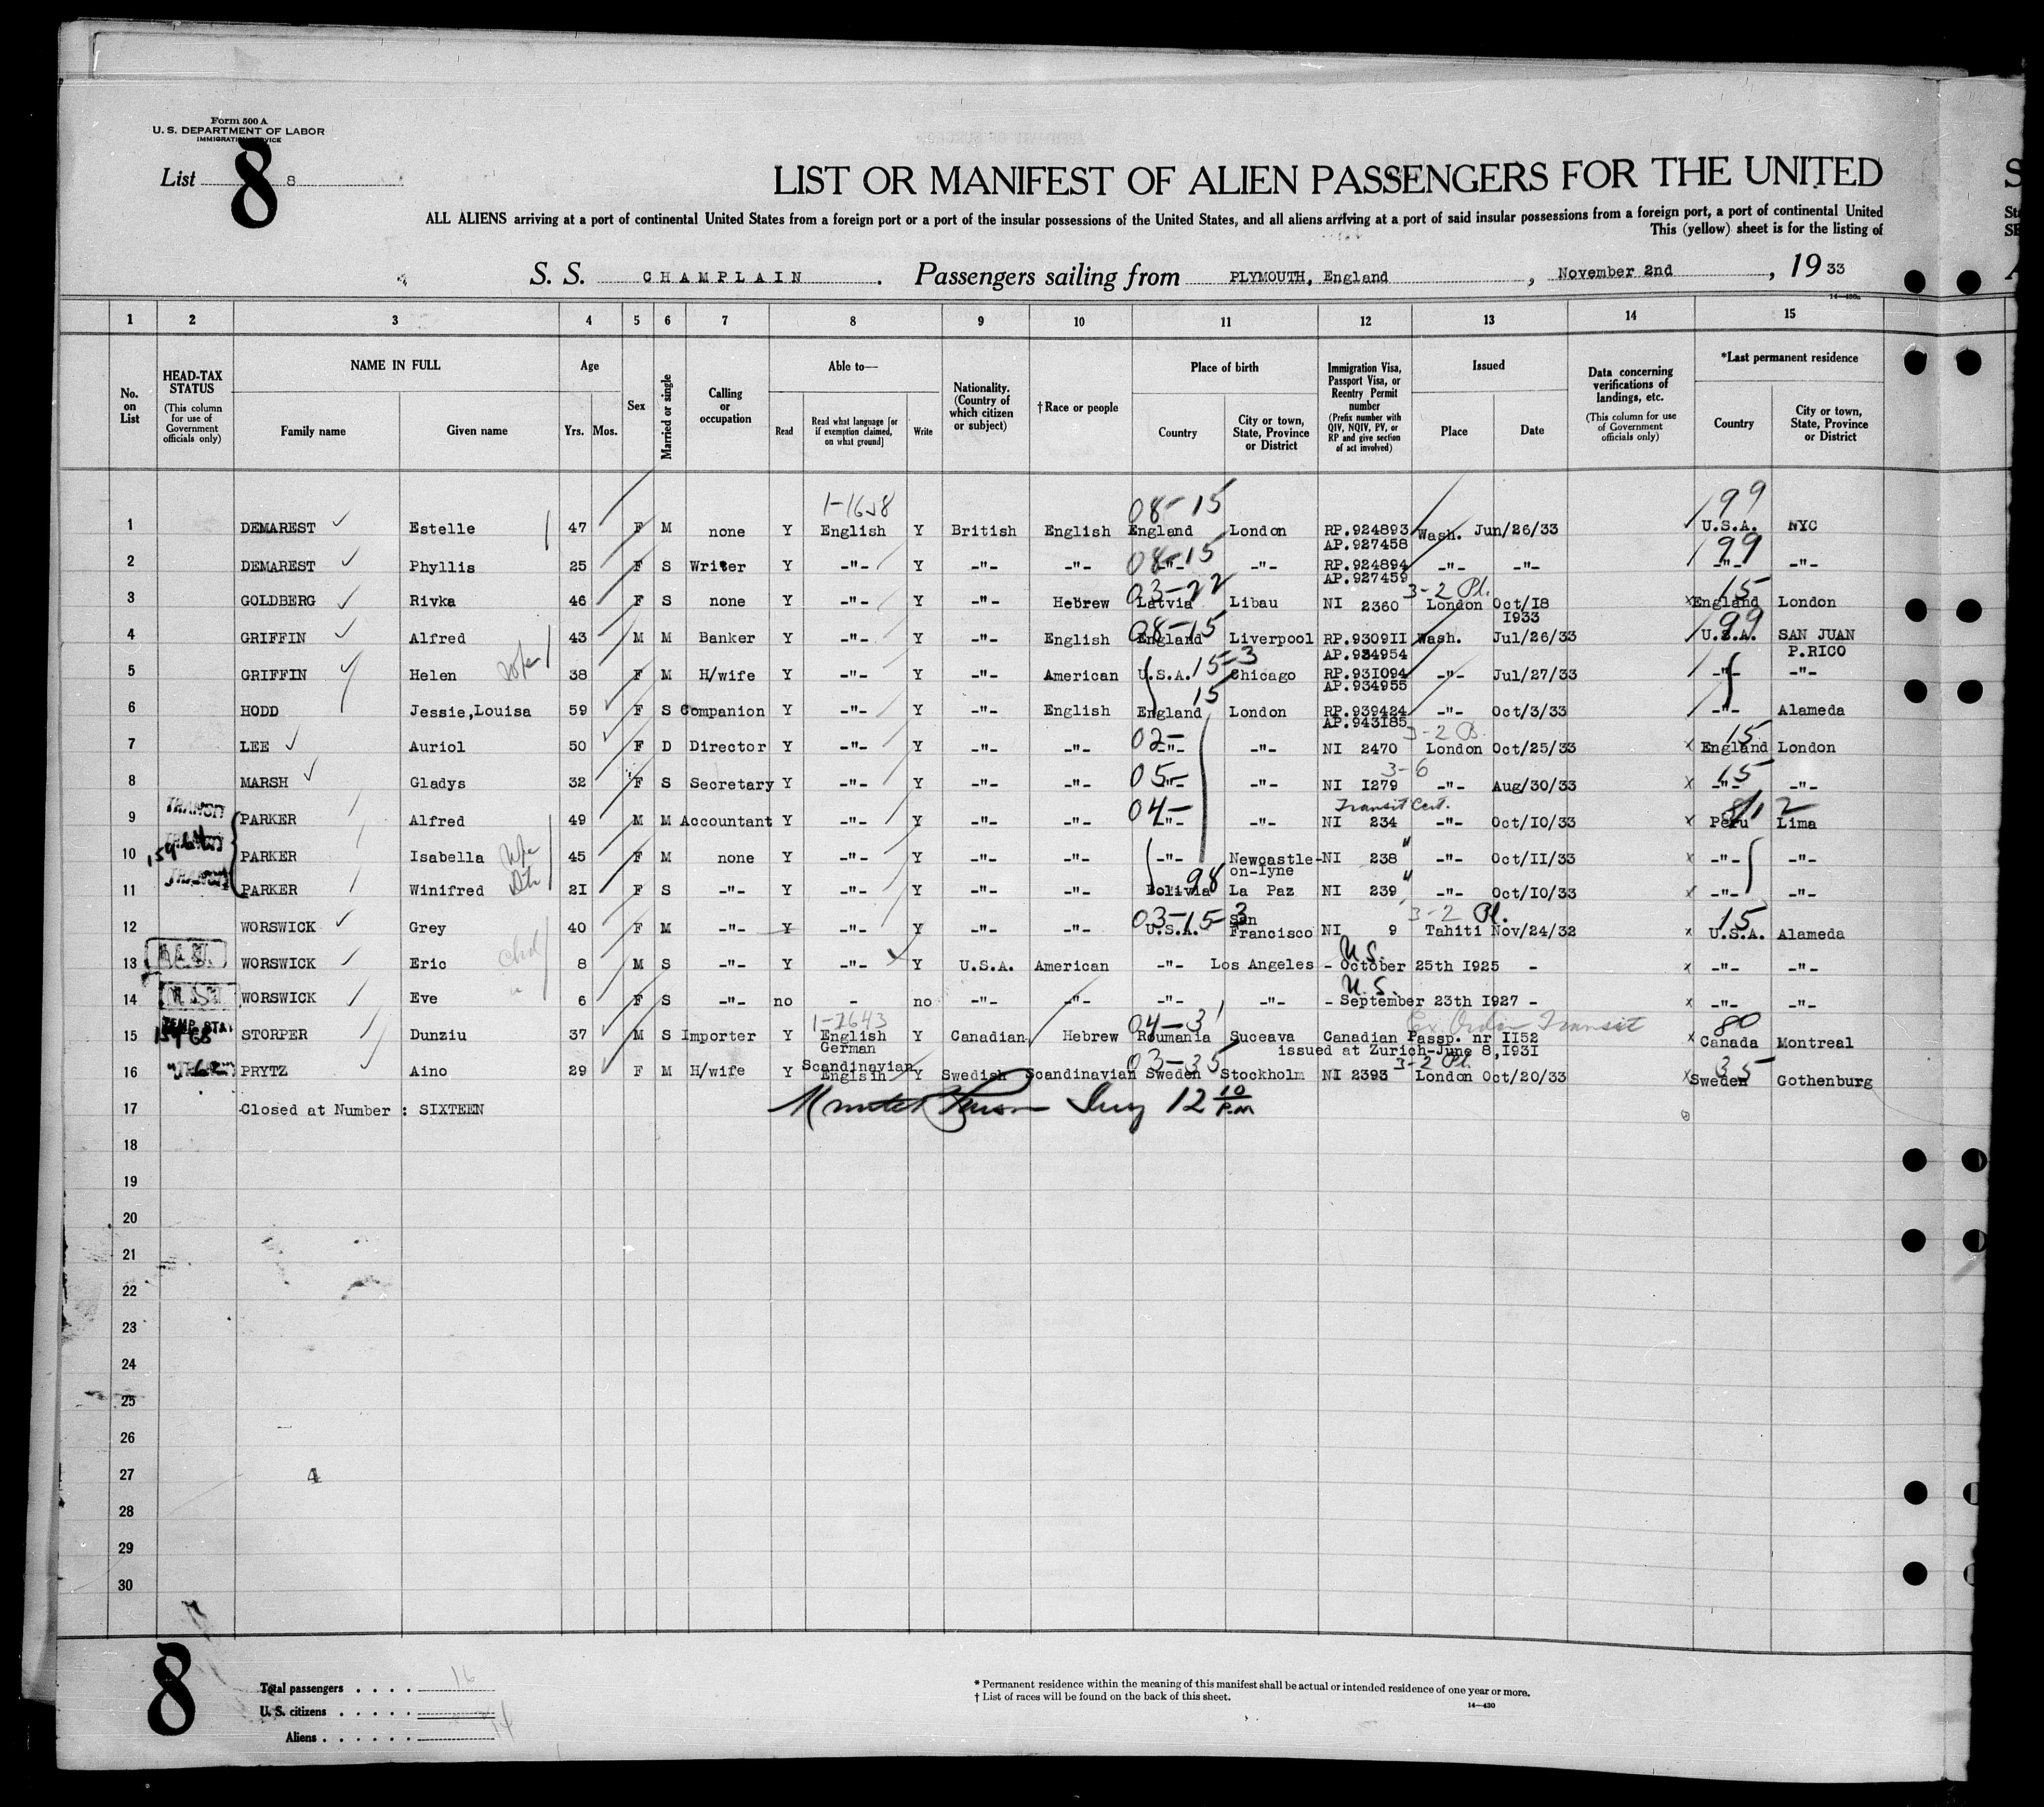 Form 500 A
U. S. DEPARTMENT OF LABOR
IMMIGRATION SERVICE
List 8 8
LIST OR MANIFEST OF ALIEN PASSENGERS FOR THE UNITED
ALL ALIENS arriving at a port of continental United States from a foreign port or a port of the insular possessions of the United States, and all aliens arriving at a port of said insular possessions from a foreign port, a port of continental United
This (yellow) sheet is for the listing of
S. S. CHAMPLAIN . Passengers sailing from PLYMOUTH, England , November 2nd , 19 33
1 2 3 4 5 6 7 8 9 10 11 12 13 14 15
No. on List
HEAD-TAX STATUS (This column for use of Government officials only)
NAME IN FULL
Family name Given name
Age
Yrs. Mos.
Sex
Married or single
Calling or occupation
Able to—
Read
Read what language [or if exemption claimed, on what ground]
Write
Nationality. (Country of which citizen or subject)
†Race or people
Place of birth
Country
City or town, State, Province or District
Immigration Visa, Passport Visa, or Reentry Permit number (Prefix number with QIV, NQIV, PV, or RP and give section of act involved)
Issued
Place Date
Data concerning verifications of landings, etc. (This column for use of Government officials only)
*Last permanent residence
Country
City or town, State, Province or District
08-15 99
1 DEMAREST Estelle 47 F M none Y English Y British English England London RP.924893 Wash. Jun/26/33 U.S.A. NYC
AP.927458
08-15 99
2 DEMAREST Phyllis 25 F S Writer Y -"- Y -"- -"- -"- -"- RP.924894 -"- -"- -"- -"-
AP.927459
03-22 3-2 Pl. 15
3 GOLDBERG Rivka 46 F S none Y -"- Y -"- Hebrew Latvia Libau NI 2360 London Oct/I8 England London
I933
08-15 99
4 GRIFFIN Alfred 43 M M Banker Y -"- Y -"- English England Liverpool RP.9309II Wash. Jul/26/33 U.S.A. SAN JUAN
AP.934954 P.RICO
15-3
5 GRIFFIN Helen 38 F M H/wife Y -"- Y -"- American U.S.A. Chicago RP.93I094 -"- Jul/27/33 -"- -"-
AP.934955
15
6 HODD Jessie,Louisa 59 F S Companion Y -"- Y -"- English England London RP.939424 -"- Oct/3/33 -"- Alameda
AP.943I85
02- 15
7 LEE Auriol 50 F D Director Y -"- Y -"- -"- -"- -"- NI 2470 London Oct/25/33 England London
05- 3-6 15
8 MARSH Gladys 32 F S Secretary Y -"- Y -"- -"- -"- -"- NI I279 -"- Aug/30/33 -"- -"-
TRANSIT
04- Transit Cert.
9 PARKER Alfred 49 M M Accountant Y -"- Y -"- -"- -"- -"- NI 234 -"- Oct/I0/33 Peru Lima
10 PARKER Isabella 45 F M none Y -"- Y -"- -"- -"- Newcastle-on-Tyne NI 238 " -"- Oct/II/33 -"- -"-
TRANSIT
98
11 PARKER Winifred 2I F S -"- Y -"- Y -"- -"- Bolivia La Paz NI 239 " -"- Oct/I0/33 -"- -"-
03-15-3 3-2 Pl. 15
12 WORSWICK Grey 40 F M -"- Y -"- Y -"- -"- U.S.A. San Francisco NI 9 Tahiti Nov/24/32 U.S.A. Alameda
U.S.
13 WORSWICK Eric 8 M S -"- Y -"- Y U.S.A. American -"- Los Angeles - October 25th I925 - -"- -"-
U.S.
14 WORSWICK Eve 6 F S -"- no - no -"- -"- -"- -"- - September 23th I927 - -"- -"-
04-3 80
15 STORPER Dunziu 37 M S Importer Y English Y Canadian Hebrew Roumania Suceava Canadian Passp. nr II52 Canada Montreal
German issued at Zurich-June 8,I93I
03-35 3-2 Pl. 35
16 PRYTZ Aino 29 F M H/wife Y Scandinavian Englsih Y Swedish Scandinavian Sweden Stockholm NI 2393 London Oct/20/33 Sweden Gothenburg
17 Closed at Number : SIXTEEN 12 10 P.M
18
19
20
21
22
23
24
25
26
27 4
28
29
30
8
Total passengers . . . . 16
U. S. citizens . . . . .
Aliens . . . . . . 14
* Permanent residence within the meaning of this manifest shall be actual or intended residence of one year or more.
† List of races will be found on the back of this sheet.
14—430